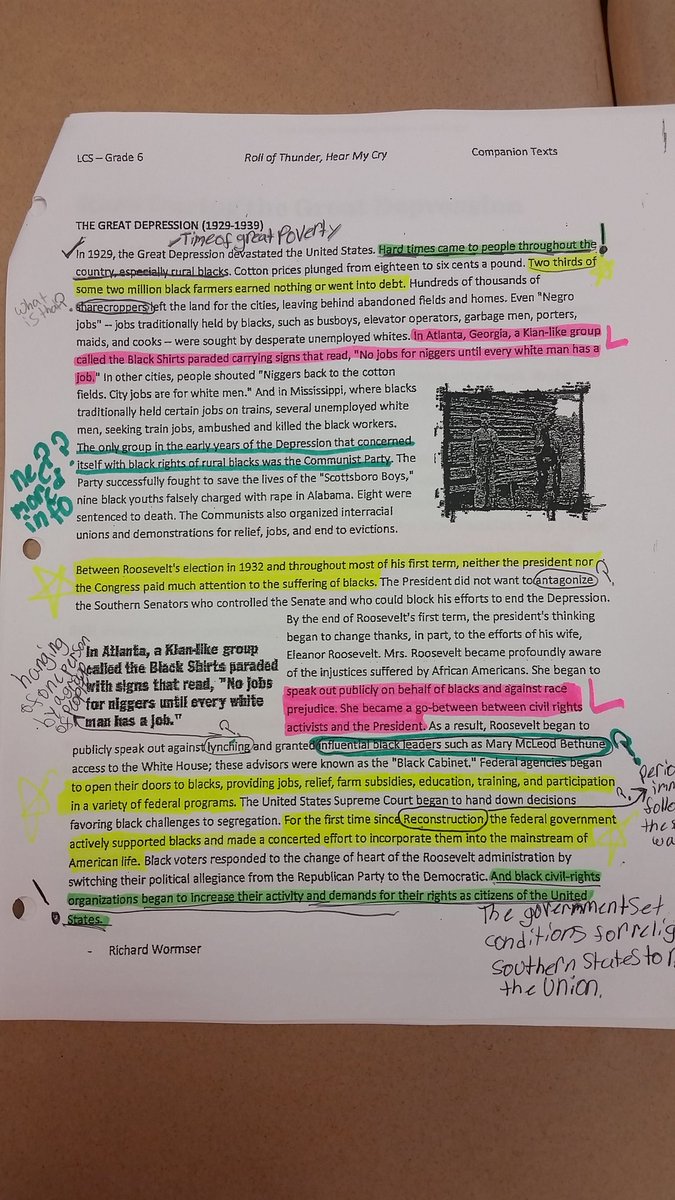 LCS – Grade 6 Roll of Thunder, Hear My Cry Companion Texts
THE GREAT DEPRESSION (1929-1939)
Time of great Poverty
In 1929, the Great Depression devastated the United States. Hard times came to people throughout the
country, especially rural blacks. Cotton prices plunged from eighteen to six cents a pound. Two thirds of
some two million black farmers earned nothing or went into debt. Hundreds of thousands of
what
is that?
sharecroppers left the land for the cities, leaving behind abandoned fields and homes. Even "Negro
jobs" -- jobs traditionally held by blacks, such as busboys, elevator operators, garbage men, porters,
maids, and cooks -- were sought by desperate unemployed whites. In Atlanta, Georgia, a Klan-like group
called the Black Shirts paraded carrying signs that read, "No jobs for niggers until every white man has a
job." In other cities, people shouted "Niggers back to the cotton
fields. City jobs are for white men." And in Mississippi, where blacks
traditionally held certain jobs on trains, several unemployed white
men, seeking train jobs, ambushed and killed the black workers.
The only group in the early years of the Depression that concerned
itself with black rights of rural blacks was the Communist Party. The
Party successfully fought to save the lives of the "Scottsboro Boys,"
nine black youths falsely charged with rape in Alabama. Eight were
sentenced to death. The Communists also organized interracial
unions and demonstrations for relief, jobs, and end to evictions.
more
info
Between Roosevelt's election in 1932 and throughout most of his first term, neither the president nor
the Congress paid much attention to the suffering of blacks. The President did not want to antagonize ?
the Southern Senators who controlled the Senate and who could block his efforts to end the Depression.
By the end of Roosevelt's first term, the president's thinking
began to change thanks, in part, to the efforts of his wife,
Eleanor Roosevelt. Mrs. Roosevelt became profoundly aware
of the injustices suffered by African Americans. She began to
speak out publicly on behalf of blacks and against race
prejudice. She became a go-between between civil rights
activists and the President. As a result, Roosevelt began to
hanging
of one person
by a group
of people
In Atlanta, a Klan-like group
called the Black Shirts paraded
with signs that read, "No jobs
for niggers until every white
man has a job."
publicly speak out against lynching and granted influential black leaders such as Mary McLeod Bethune ?
access to the White House; these advisors were known as the "Black Cabinet." Federal agencies began
to open their doors to blacks, providing jobs, relief, farm subsidies, education, training, and participation
in a variety of federal programs. The United States Supreme Court began to hand down decisions
favoring black challenges to segregation. For the first time since Reconstruction the federal government
actively supported blacks and made a concerted effort to incorporate them into the mainstream of
American life. Black voters responded to the change of heart of the Roosevelt administration by
switching their political allegiance from the Republican Party to the Democratic. And black civil-rights
organizations began to increase their activity and demands for their rights as citizens of the United
States.
- Richard Wormser
The government set
conditions for
southern states to
the union.